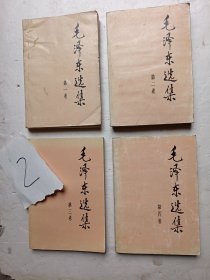 毛泽东选集
第一卷
毛泽东选集
第二卷
2
毛泽东选集
第三卷
毛泽东选集
第四卷